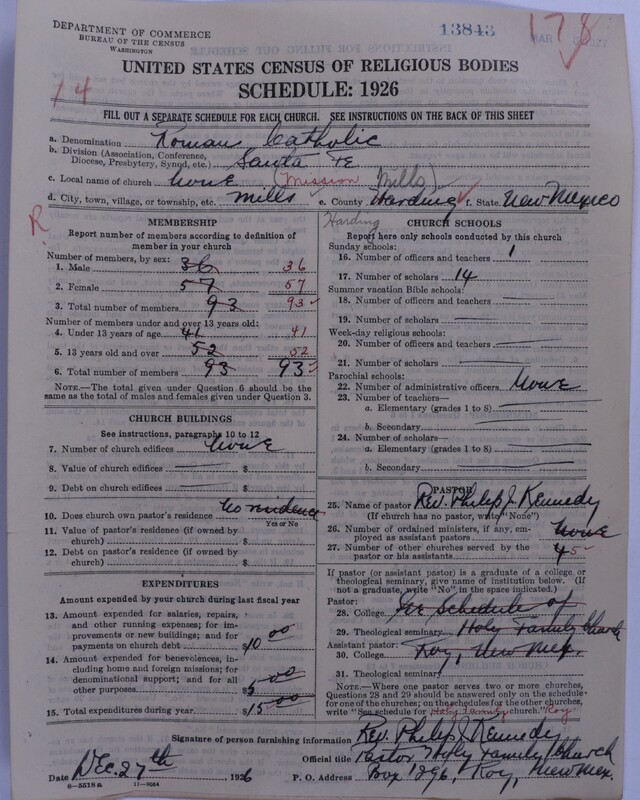 DEPARTMENT OF COMMERCE
BUREAU OF THE CENSUS
WASHINGTON
13843
178
UNITED STATES CENSUS OF RELIGIOUS BODIES
SCHEDULE: 1926
14
FILL OUT A SEPARATE SCHEDULE FOR EACH CHURCH. SEE INSTRUCTIONS ON THE BACK OF THIS SHEET
a. Denomination Roman Catholic
b. Division (Association, Conference, Diocese, Presbytery, Synod, etc.) Santa Fe
c. Local name of church None (Mission Mills)
d. City, town, village, or township, etc. Mills e. County Harding f. State New Mexico
R
Harding
MEMBERSHIP
Report number of members according to definition of member in your church
Number of members, by sex:
1. Male 36 36
2. Female 57 57
3. Total number of members 93 93
Number of members under and over 13 years old:
4. Under 13 years of age 41 41
5. 13 years old and over 52 52
6. Total number of members 93 93
NOTE.—The total given under Question 6 should be the same as the total of males and females given under Question 3.
CHURCH BUILDINGS
See instructions, paragraphs 10 to 12
7. Number of church edifices None
8. Value of church edifices $
9. Debt on church edifices $
10. Does church own pastor's residence? No residence
Yes or No
11. Value of pastor's residence (if owned by church) $
12. Debt on pastor's residence (if owned by church) $
EXPENDITURES
Amount expended by your church during last fiscal year
13. Amount expended for salaries, repairs, and other running expenses; for improvements or new buildings; and for payments on church debt $10 00
14. Amount expended for benevolences, including home and foreign missions; for denominational support; and for all other purposes $5 00
15. Total expenditures during year $15 00
CHURCH SCHOOLS
Report here only schools conducted by this church
Sunday schools:
16. Number of officers and teachers 1
17. Number of scholars 14
Summer vacation Bible schools:
18. Number of officers and teachers
19. Number of scholars
Week-day religious schools:
20. Number of officers and teachers
21. Number of scholars
Parochial schools:
22. Number of administrative officers None
23. Number of teachers—
a. Elementary (grades 1 to 8)
b. Secondary
24. Number of scholars—
a. Elementary (grades 1 to 8)
b. Secondary
PASTOR
25. Name of pastor Rev. Philip J. Kennedy
(If church has no pastor, write "None")
26. Number of ordained ministers, if any, employed as assistant pastors None
27. Number of other churches served by the pastor or his assistants 4 5
If pastor (or assistant pastor) is a graduate of a college or theological seminary, give name of institution below. (If not a graduate, write "No" in the space indicated.)
Pastor:
28. College See Schedule of
29. Theological seminary Holy Family Church
Assistant pastor:
30. College Roy, New Mex.
31. Theological seminary
NOTE.—Where one pastor serves two or more churches, Questions 28 and 29 should be answered only on the schedule for one of the churches; on the schedules for the other churches, write "See schedule for Holy Family church." Roy.
Signature of person furnishing information Rev. Philip J. Kennedy
Official title Pastor Holy Family Church
Date Dec. 27th 1926 P. O. Address Box 1296, Roy, New Mex.
8—5518a 11—9064